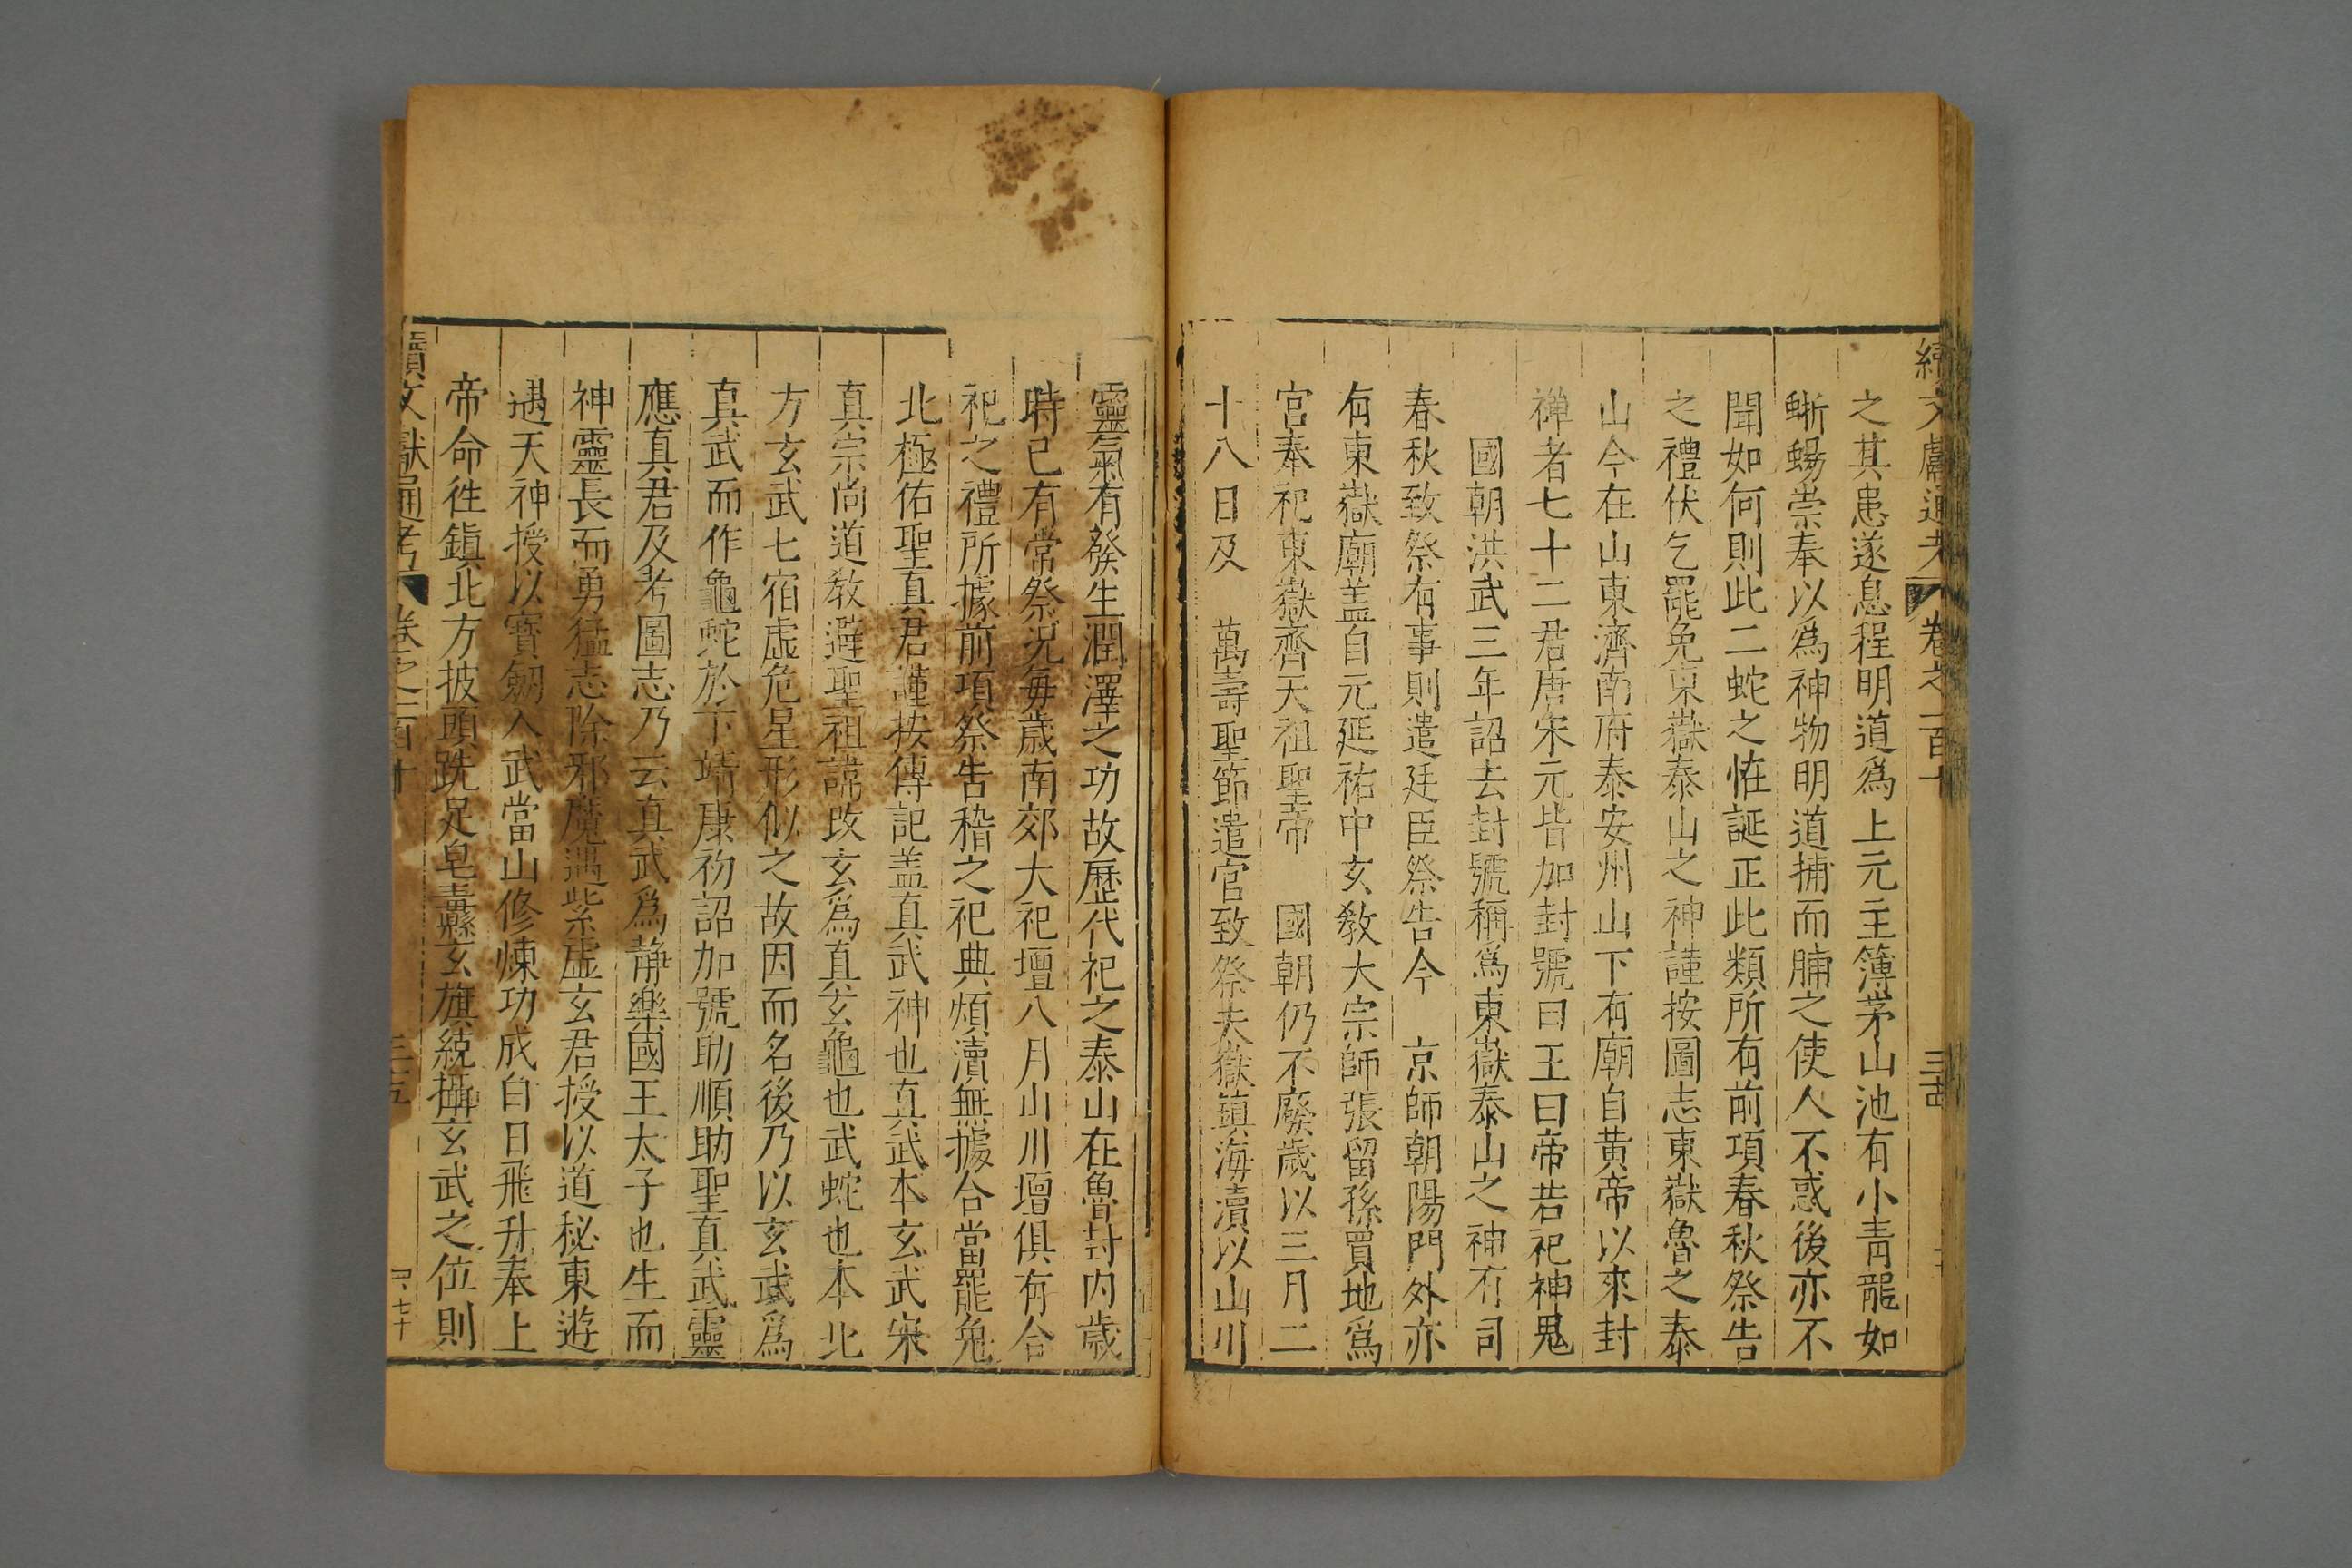 續文獻通考 卷之一百十 三百四
之其患遂息程明道爲上元主簿茅山池有小青龍如
蜥蜴崇奉以爲神物明道捕而脯之使人不惑後亦不
聞如何則此二蛇之恠誕正此類所有前項春秋祭告
之禮伏乞罷免東嶽泰山之神謹按圖志東嶽魯之泰
山今在山東濟南府泰安州山下有廟自黃帝以來封
禪者七十二君唐宋元皆加封號曰王曰帝若祀神鬼
國朝洪武三年詔去封號稱爲東嶽泰山之神有司
春秋致祭有事則遣廷臣祭告今 京師朝陽門外亦
有東嶽廟盖自元延祐中玄敎大宗師張留孫買地爲
宮奉祀東嶽齊天祖聖帝 國朝仍不廢歲以三月二
十八日及 萬壽聖節遣官致祭夫嶽鎮海瀆以山川
靈氣有發生潤澤之功故歷代祀之泰山在魯封内歲
時已有常祭况每歲南郊大祀壇八月山川壇俱有合
祀之禮所據前項祭告稽之祀典煩瀆無據合當罷免
北極佑聖真君謹按傳記盖真武神也真武本玄武宋
真宗尚道敎避聖祖諱改玄爲真玄龜也武蛇也本北
方玄武七宿虛危星形似之故因而名後乃以玄武爲
真武而作龜蛇於下靖康初詔加號助順助聖真武靈
應真君及考圖志乃云真武爲靜樂國王太子也生而
神靈長而勇猛志除邪魔遇紫虛玄君授以道秘東遊
遇天神授以寶劒入武當山修煉功成白日飛升奉上
帝命徃鎮北方披頭跣足皂纛玄旗統攝玄武之位則
續文獻通考 卷之一百十 三百五